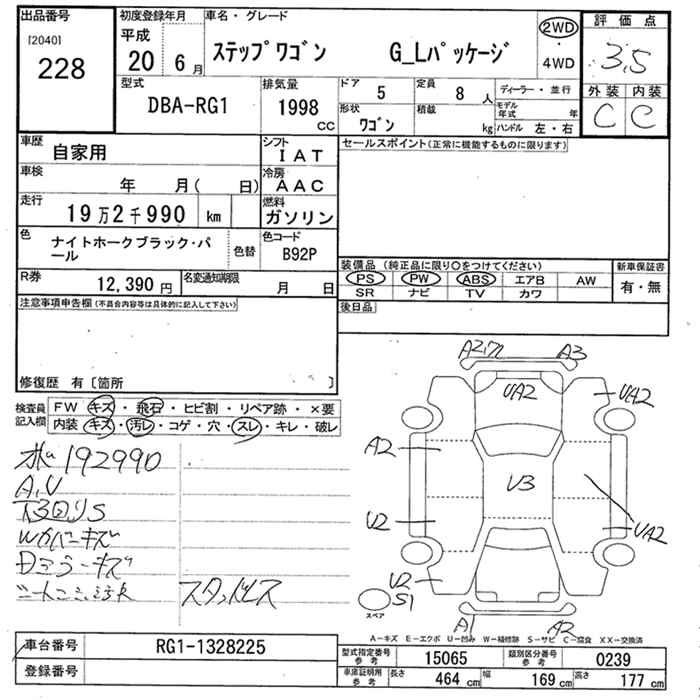 出品番号
[2040]
228
初度登録年月
平成
20 6月
車名・グレード
ステップワゴン G_Lパッケージ
2WD
・
4WD
評価点
3.5
外装 内装
C C
型式
DBA-RG1
排気量
1998
CC
ドア
5
定員
8 人
ディーラー・並行
形状
ワゴン
積載
kg
モデル年式 年
ハンドル 左・右
車歴
自家用
シフト
IAT
車検
年 月( 日)
冷房
AAC
走行
19万2千990 km
燃料
ガソリン
色
ナイトホークブラック・パール
色替
色コード
B92P
R券
12,390円
名変通知期限
月 日
セールスポイント(正常に機能するものに限ります)
装備品 (純正品に限り○をつけてください)
PS PW ABS エアB AW
SR ナビ TV カワ
新車保証書
有・無
後日品
注意事項申告欄(不具合内容等は具体的に記入して下さい)
修復歴 有〔箇所 〕
検査員記入欄
FW キズ・飛石・ヒビ割・リペア跡・×要
内装 キズ・汚レ・コゲ・穴・スレ・キレ・破レ
192990
A,U
下回りS
Wカバーキズ
Dミラーキズ
スタッドレス
A2 A3
UA2 UA2
A2
U3
U2 UA2
U2
S1
スペア
A1 A2
A−キズ E−エクボ U−凹み W−補修跡 S−サビ C−腐食 XX−交換済
車台番号
RG1-1328225
登録番号
型式指定番号
参考
15065
類別区分番号
参考
0239
車庫証明用
参考
長さ 464 cm 幅 169 cm 高さ 177 cm